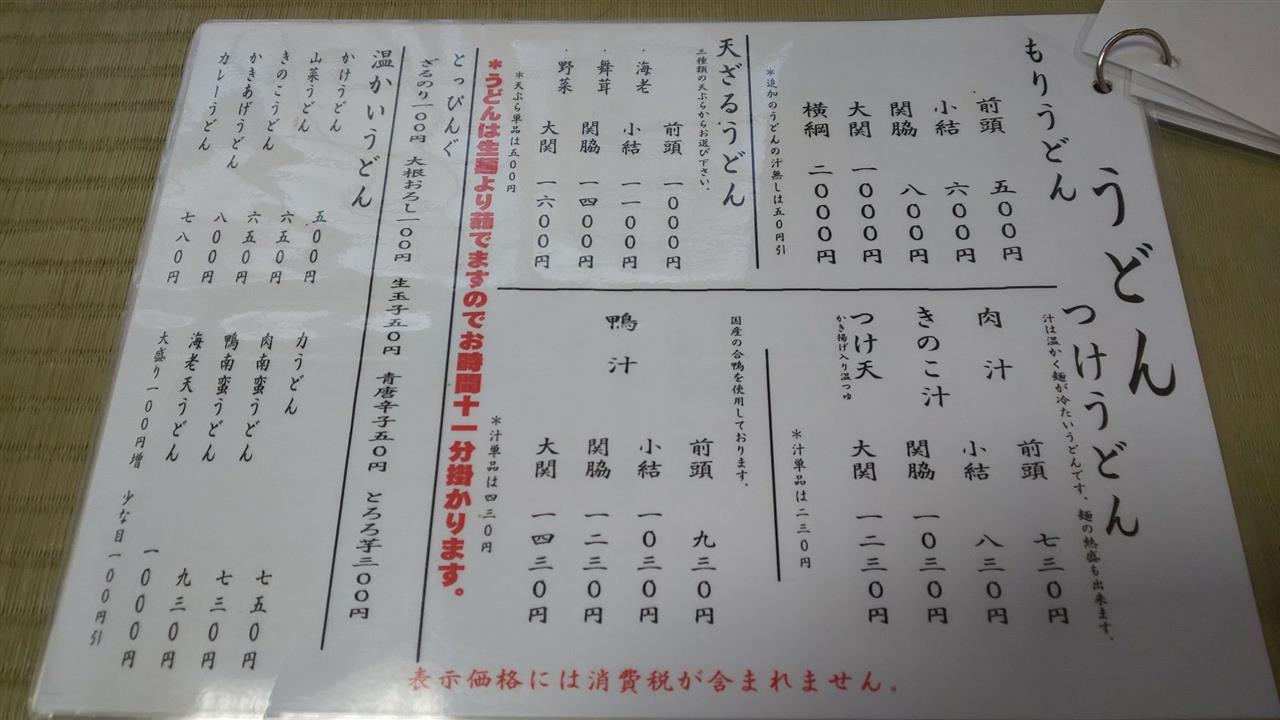 うどん
もりうどん
前頭 五００円
小結 六００円
関脇 八００円
大関 一０００円
横綱 二０００円
*追加のうどんの汁無しは五０円引
天ざるうどん
三種類の天ぷらからお選び下さい。
・海老
・舞茸
・野菜
前頭 一０００円
小結 一一００円
関脇 一四００円
大関 一六００円
*天ぷら単品は五００円
つけうどん
汁は温かく麺が冷たいうどんです。麺の熱盛も出来ます。
肉汁
きのこ汁
つけ天
かき揚げ入り温つゆ
前頭 七三０円
小結 八三０円
関脇 一０三０円
大関 一二三０円
*汁単品は二三０円
国産の合鴨を使用しております。
鴨汁
前頭 九三０円
小結 一０三０円
関脇 一二三０円
大関 一四三０円
*汁単品は四三０円
*うどんは生麺より茹でますのでお時間十一分掛かります。
とっぴんぐ
ざるのり一００円 大根おろし一００円 生玉子五０円 青唐辛子五０円 とろろ芋三００円
温かいうどん
かけうどん 五００円
山菜うどん 六五０円
きのこうどん 六五０円
かきあげうどん 八００円
カレーうどん 七八０円
力うどん 七五０円
肉南蛮うどん 七三０円
鴨南蛮うどん 九三０円
海老天うどん 一０００円
大盛り一００円増 少な目一００円引
表示価格には消費税が含まれません。